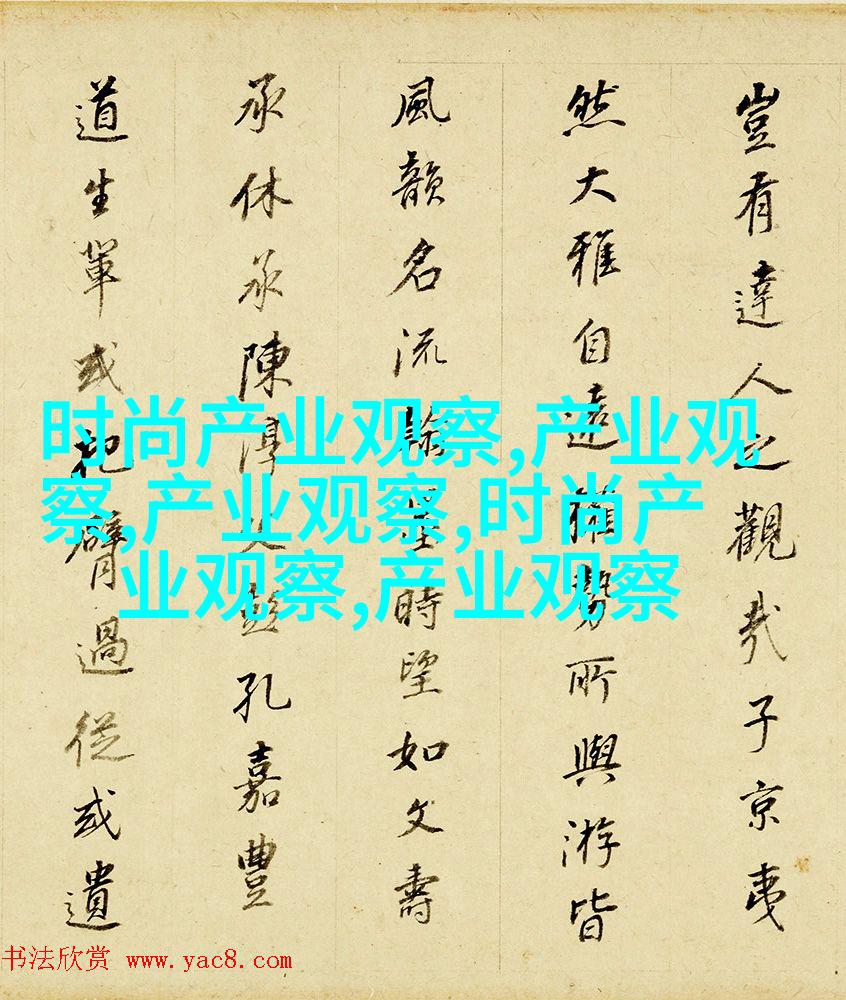 豈有達人之觀哉子京夷
然大雅自遠權勢所與游皆
風韻名流翰墨時望如文壽
承休承陳淳父彭孔嘉豐
道生輩或把臂過從或遺
时尚产业观察,产业观
察,产业观察,时尚产
业观察,产业观察
书法欣赏 www.yac8.com